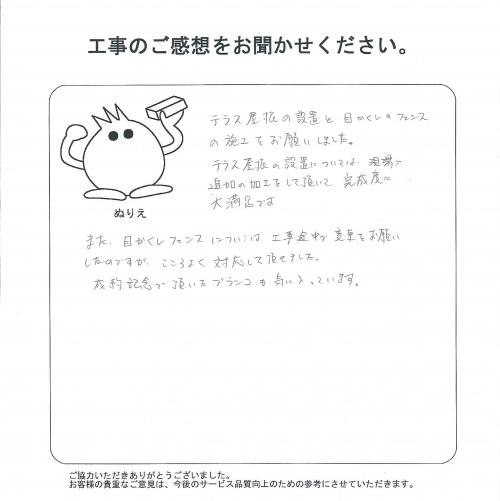 工事のご感想をお聞かせください。
テラス屋根の設置と目かくしのフェンス
の施工をお願いしました。
テラス屋根の設置については、現場で
追加の加工をして頂いて、完成度に
大満足です
ぬりえ
また、目かくしフェンスについては、工事途中で変更をお願い
したのですが、こころよく対応して頂きました。
成約記念で頂いたブランコも気に入っています。
ご協力いただきありがとうございました。
お客様の貴重なご意見は、今後のサービス品質向上のための参考にさせていただきます。